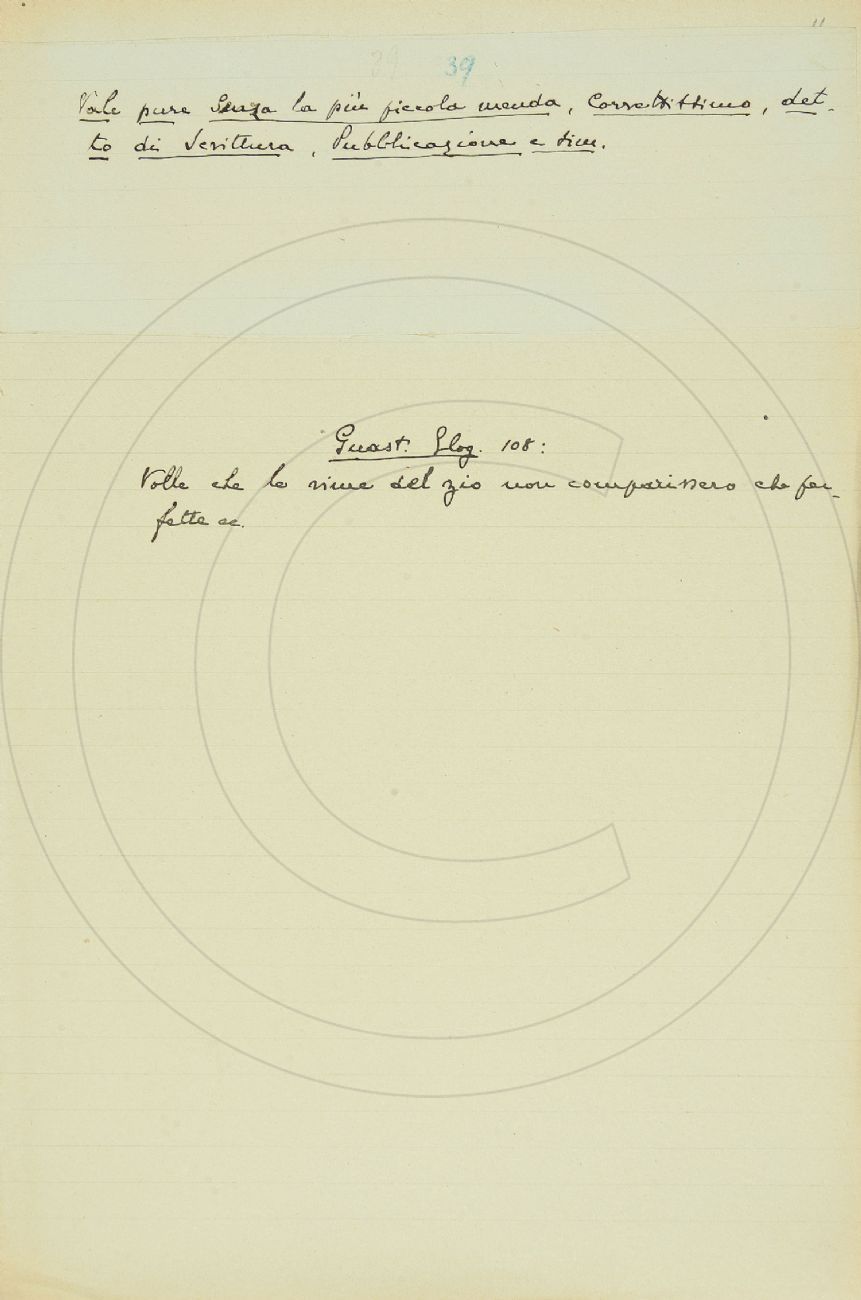 11
39
Vale pure Senza la più piccola menda, Correttissimo, det-
to di Scrittura, Pubblicazione e sim.
Guast. Elog. 108:
Volle che le rime del zio non comparissero che per-
fette ec.